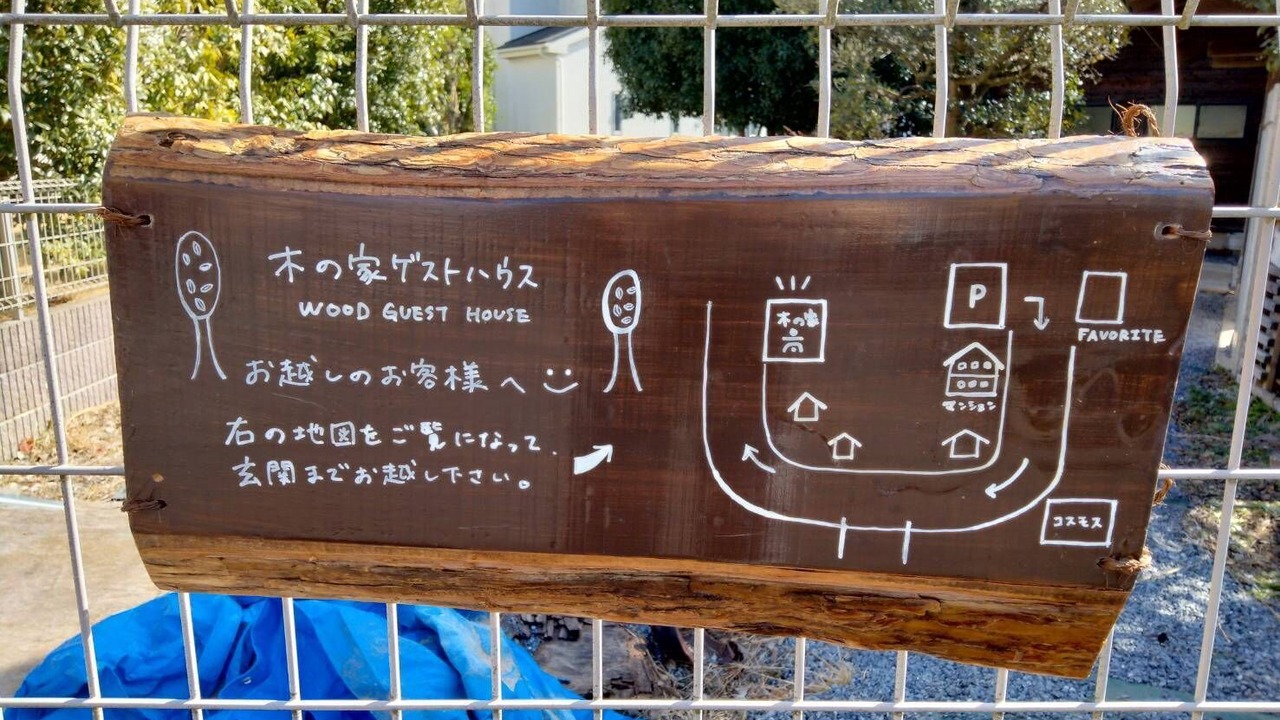 木の家ゲストハウス
WOOD GUEST HOUSE
お越しのお客様へ
右の地図をご覧になって、
玄関までお越し下さい。
木の家
P
FAVORITE
マンション
コスモス